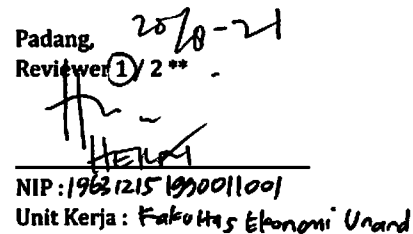 Padang, 20/8-21
Reviewer 1 / 2 **
NIP : 196312151990011001
Unit Kerja : Fakultas Ekonomi Unand